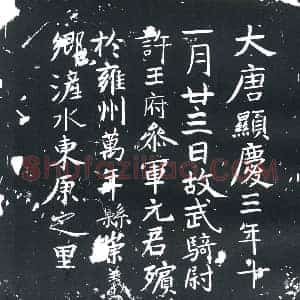 大唐顯慶三年十
一月廿三日故武騎尉
許王府參軍元君殯
於雍州萬年縣崇義
鄉滻水東原之里